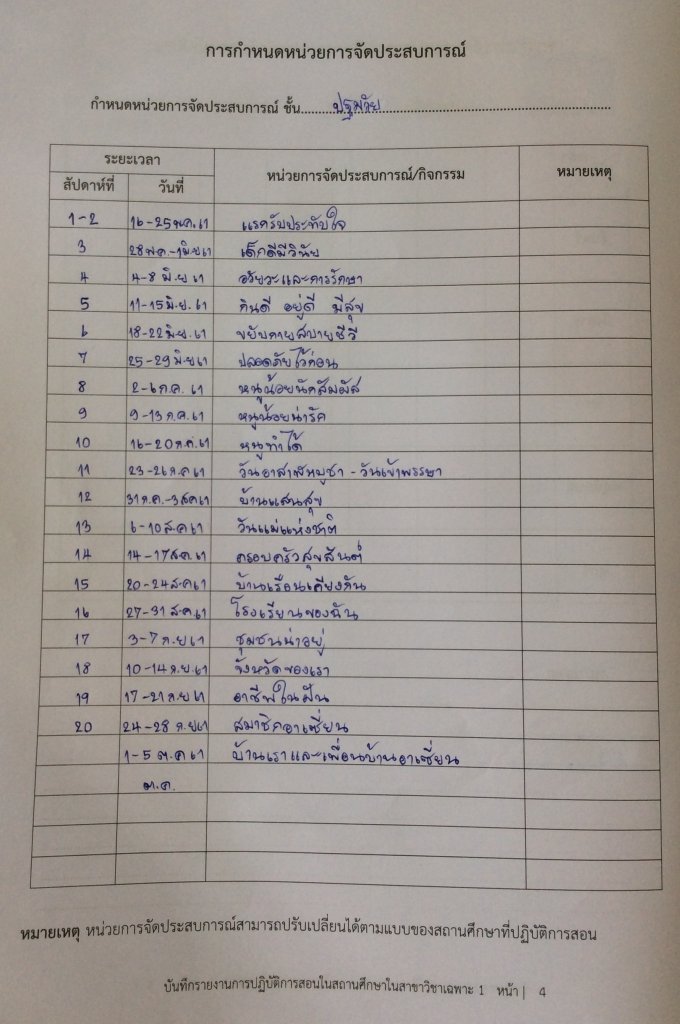 การกำหนดหน่วยการจัดประสบการณ์
กำหนดหน่วยการจัดประสบการณ์ ชั้น ปฐมวัย
ระยะเวลา หน่วยการจัดประสบการณ์/กิจกรรม หมายเหตุ
สัปดาห์ที่ วันที่
1-2 16-25 พ.ค. 61 แรกรับประทับใจ
3 28 พ.ค.-1 มิ.ย 61 เด็กดีมีวินัย
4 4-8 มิ.ย 61 อวัยวะและการรักษา
5 11-15 มิ.ย. 61 กินดี อยู่ดี มีสุข
6 18-22 มิ.ย. 61 ขยับกายสบายชีวี
7 25-29 มิ.ย 61 ปลอดภัยไว้ก่อน
8 2-6 ก.ค. 61 หนูน้อยนักสัมผัส
9 9-13 ก.ค. 61 หนูน้อยน่ารัก
10 16-20 ก.ค. 61 หนูทำได้
11 23-26 ก.ค 61 วันอาสาฬหบูชา - วันเข้าพรรษา
12 31 ก.ค.-3 ส.ค 61 บ้านแสนสุข
13 6-10 ส.ค 61 วันแม่แห่งชาติ
14 14-17 ส.ค. 61 ครอบครัวสุขสันต์
15 20-24 ส.ค 61 บ้านเรือนเคียงกัน
16 27-31 ส.ค. 61 โรงเรียนของฉัน
17 3-7 ก.ย 61 ชุมชนน่าอยู่
18 10-14 ก.ย. 61 จังหวัดของเรา
19 17-21 ก.ย 61 อาชีพในฝัน
20 24-28 ก.ย 61 สมาชิกอาเซี่ยน
1-5 ต.ค 61 บ้านเราและเพื่อนบ้านอาเซี่ยน
ต.ค.
หมายเหตุ หน่วยการจัดประสบการณ์สามารถปรับเปลี่ยนได้ตามแบบของสถานศึกษาที่ปฏิบัติการสอน
บันทึกรายงานการปฏิบัติการสอนในสถานศึกษาในสาขาวิชาเฉพาะ 1 หน้า | 4